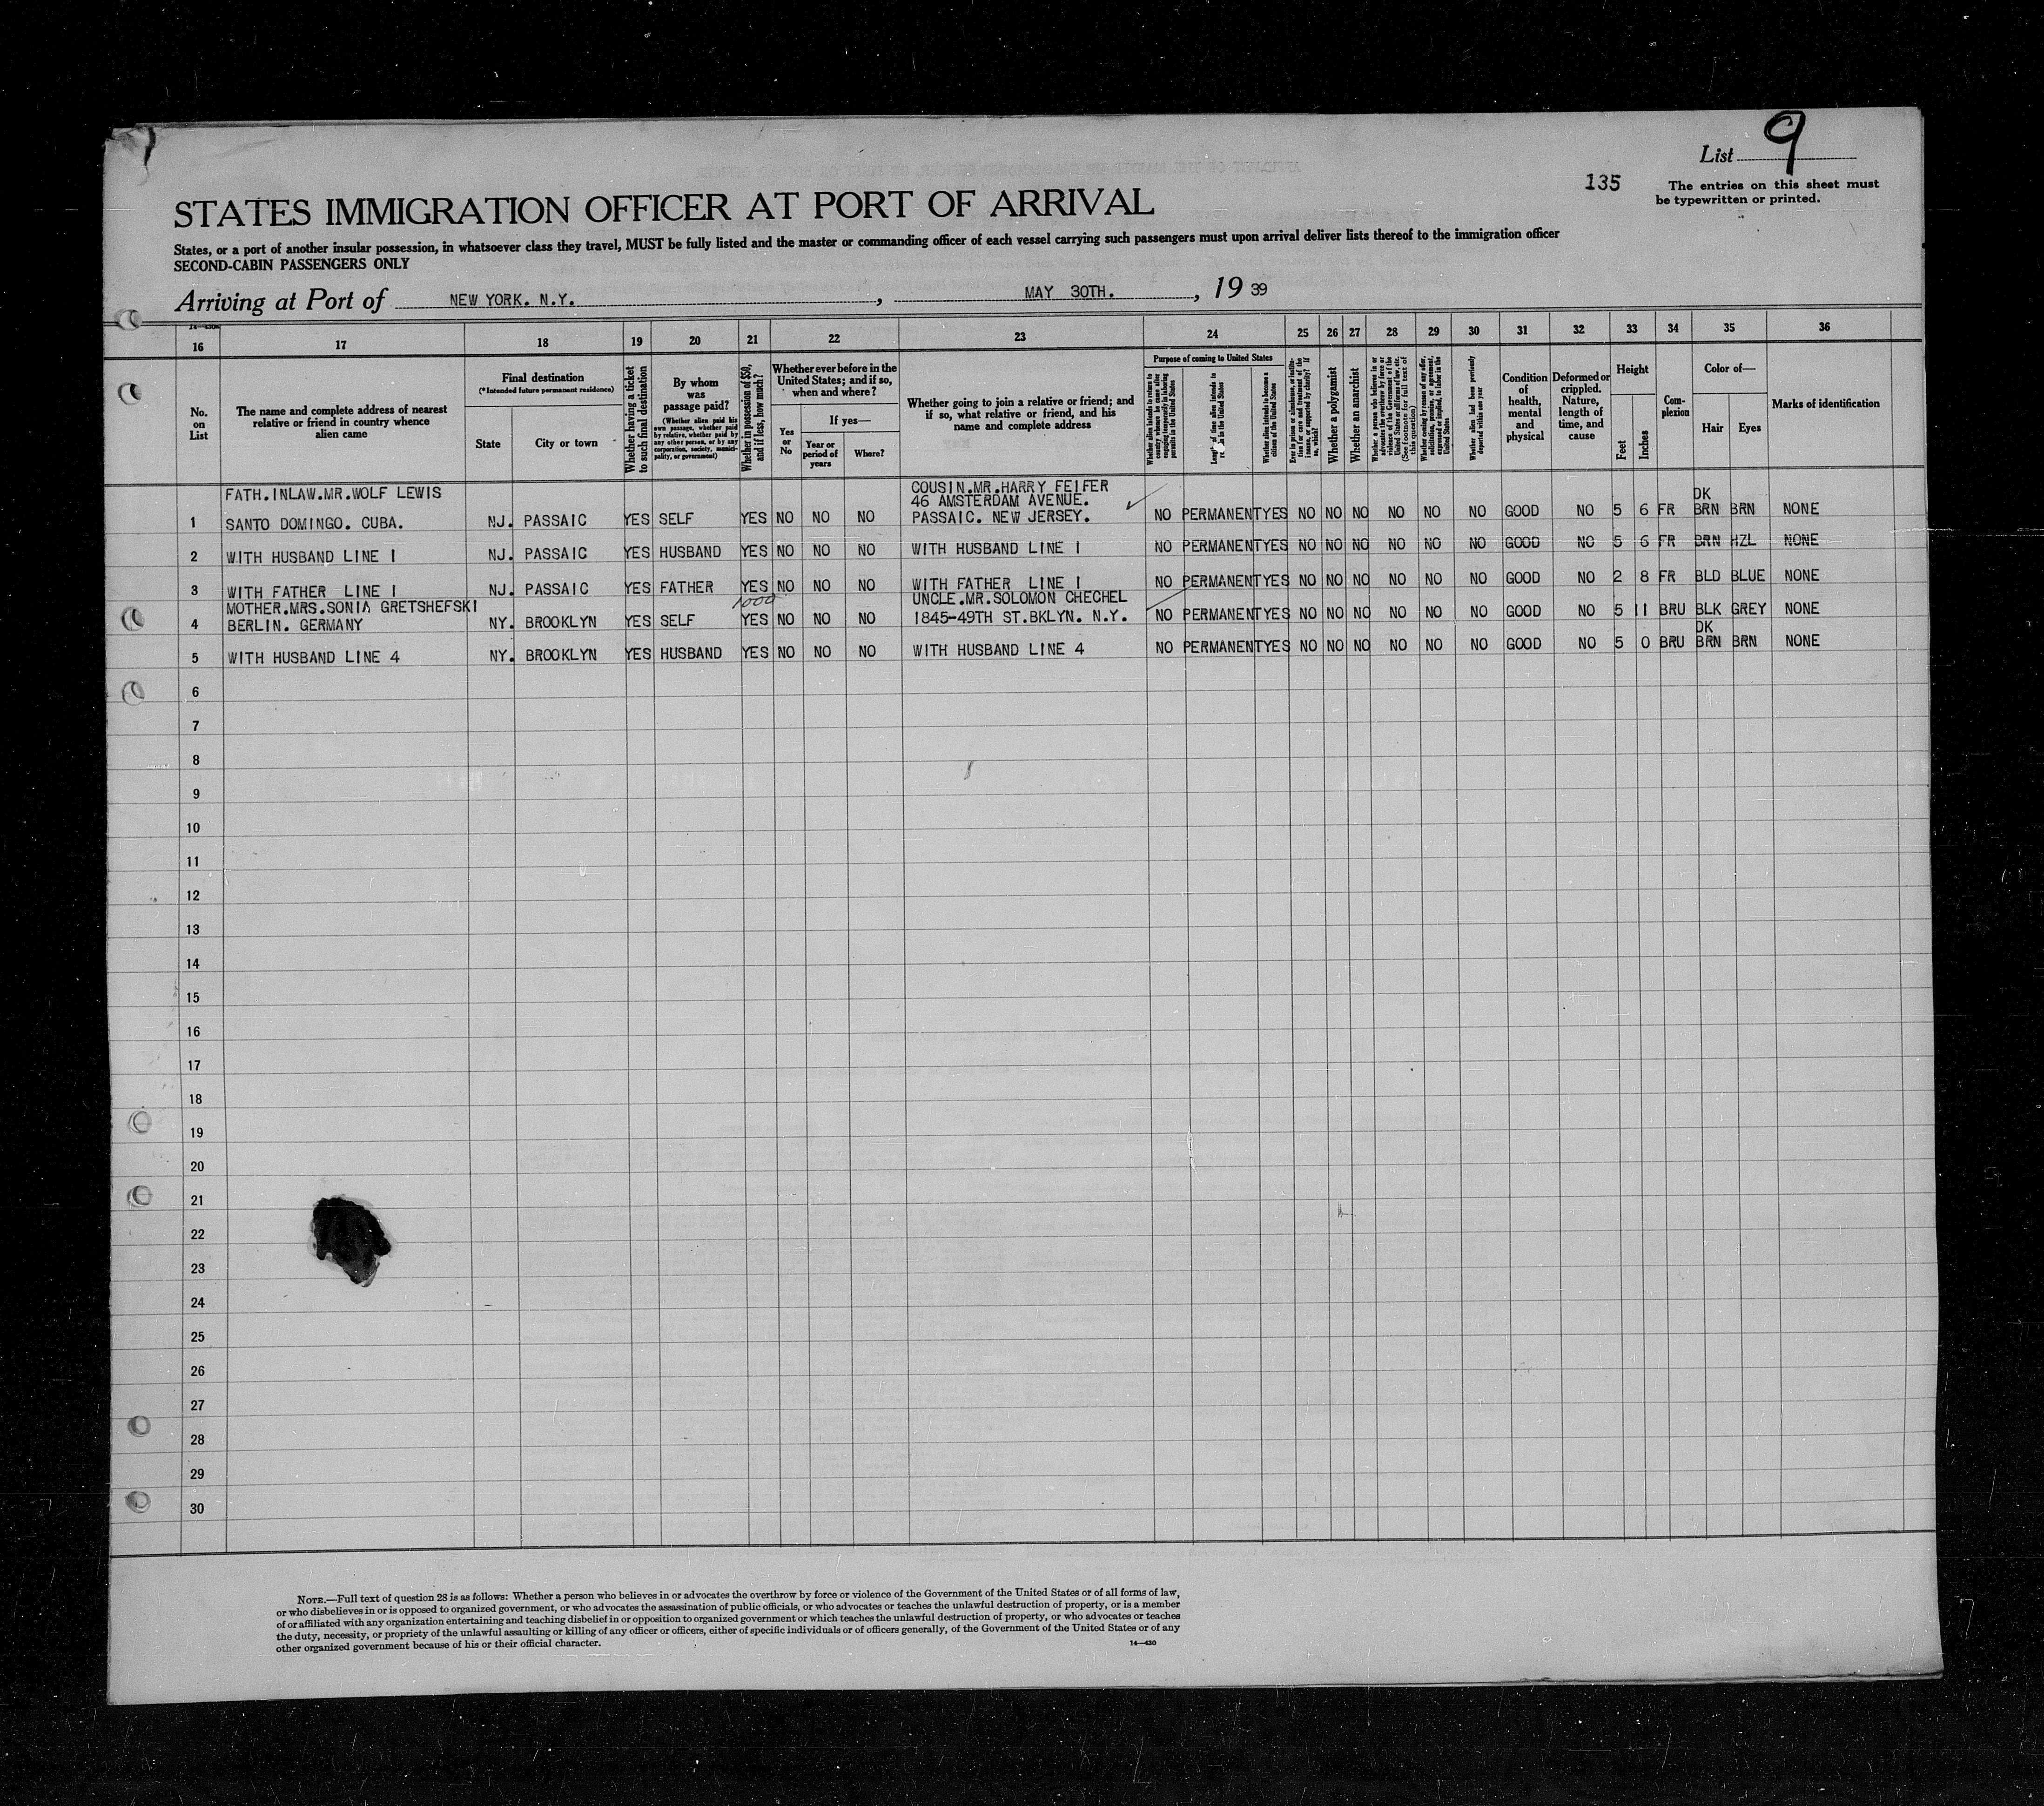 List 9
135
The entries on this sheet must
be typewritten or printed.
STATES IMMIGRATION OFFICER AT PORT OF ARRIVAL
States, or a port of another insular possession, in whatsoever class they travel, MUST be fully listed and the master or commanding officer of each vessel carrying such passengers must upon arrival deliver lists thereof to the immigration officer
SECOND-CABIN PASSENGERS ONLY
Arriving at Port of NEW YORK. N.Y. , MAY 30TH. , 19 39
16 17 18 19 20 21 22 23 24 25 26 27 28 29 30 31 32 33 34 35 36
No.
on
List
The name and complete address of nearest
relative or friend in country whence
alien came
Final destination
(*Intended future permanent residence)
State
City or town
Whether having a ticket
to such final destination
By whom
was
passage paid?
(Whether alien paid his
own passage, whether paid
by relative, whether paid by
any other person, or by any
corporation, society, munici-
pality, or government)
Whether in possession of $50,
and if less, how much?
Whether ever before in the
United States; and if so,
when and where?
Yes
or
No
If yes—
Year or
period of
years
Where?
Whether going to join a relative or friend; and
if so, what relative or friend, and his
name and complete address
Purpose of coming to United States
Whether alien intends to become a
citizen of the United States
Whether a polygamist
Whether an anarchist
Whether alien had been previously
deported within one year
Condition
of
health,
mental
and
physical
Deformed or
crippled.
Nature,
length of
time, and
cause
Height
Feet
Inches
Com-
plexion
Color of—
Hair
Eyes
Marks of identification
FATH.INLAW.MR.WOLF LEWIS COUSIN.MR.HARRY FEIFER
46 AMSTERDAM AVENUE. DK
1 SANTO DOMINGO. CUBA. NJ. PASSAIC YES SELF YES NO NO NO PASSAIC. NEW JERSEY. NO PERMANENT YES NO NO NO NO NO NO GOOD NO 5 6 FR BRN BRN NONE
2 WITH HUSBAND LINE 1 NJ. PASSAIC YES HUSBAND YES NO NO NO WITH HUSBAND LINE 1 NO PERMANENT YES NO NO NO NO NO NO GOOD NO 5 6 FR BRN HZL NONE
3 WITH FATHER LINE 1 NJ. PASSAIC YES FATHER YES NO NO NO WITH FATHER LINE 1 NO PERMANENT YES NO NO NO NO NO NO GOOD NO 2 8 FR BLD BLUE NONE
MOTHER.MRS.SONIA GRETSHEFSKI 1000 UNCLE.MR.SOLOMON CHECHEL
4 BERLIN. GERMANY NY. BROOKLYN YES SELF YES NO NO NO 1845-49TH ST.BKLYN. N.Y. NO PERMANENT YES NO NO NO NO NO NO GOOD NO 5 11 BRU BLK GREY NONE
DK
5 WITH HUSBAND LINE 4 NY. BROOKLYN YES HUSBAND YES NO NO NO WITH HUSBAND LINE 4 NO PERMANENT YES NO NO NO NO NO NO GOOD NO 5 0 BRU BRN BRN NONE
6
7
8
9
10
11
12
13
14
15
16
17
18
19
20
21
22
23
24
25
26
27
28
29
30
NOTE.—Full text of question 28 is as follows: Whether a person who believes in or advocates the overthrow by force or violence of the Government of the United States or of all forms of law,
or who disbelieves in or is opposed to organized government, or who advocates the assassination of public officials, or who advocates or teaches the unlawful destruction of property, or is a member
of or affiliated with any organization entertaining and teaching disbelief in or opposition to organized government or which teaches the unlawful destruction of property, or who advocates or teaches
the duty, necessity, or propriety of the unlawful assaulting or killing of any officer or officers, either of specific individuals or of officers generally, of the Government of the United States or of any
other organized government because of his or their official character.
14—430